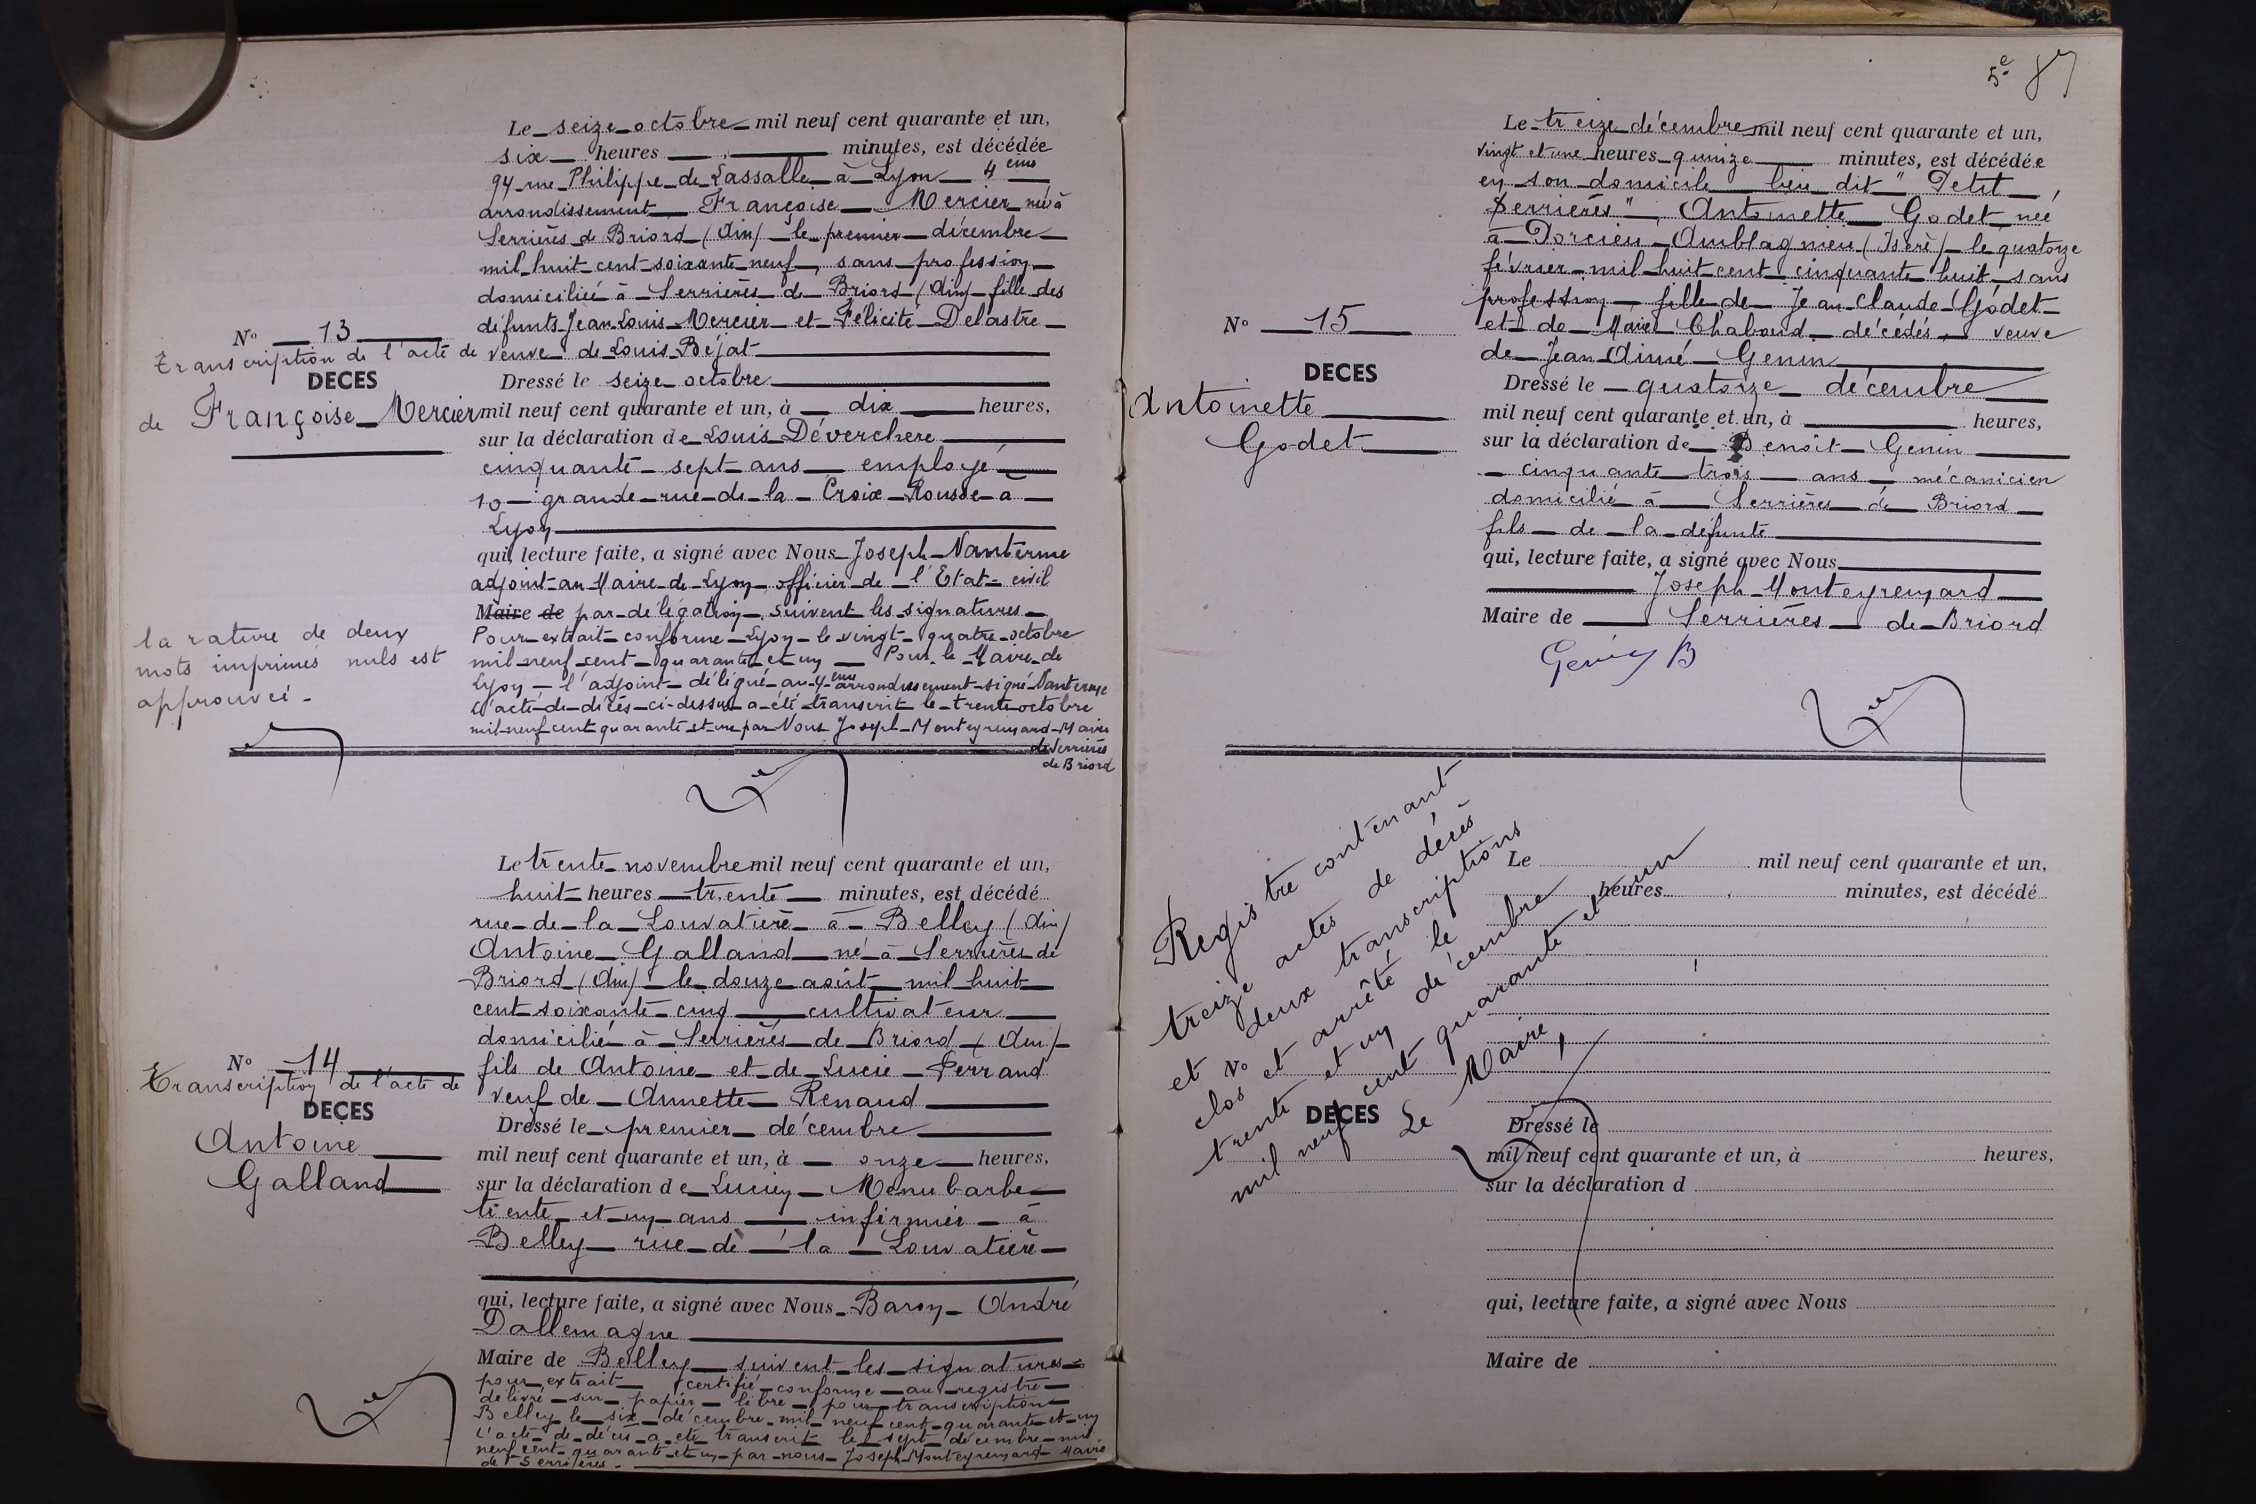 Le seize octobre mil neuf cent quarante et un,
six heures minutes, est décédée
94 rue Philippe de Lassalle à Lyon 4 eme
arrondissement Françoise Mercier née à
Serrières de Briord (Ain) le premier décembre
mil huit cent soixante neuf, sans profession
domiciliée à Serrières de Briord (Ain) fille des
défunts Jean Louis Mercier et Félicité Delastre
N° 13
Transcription de l'acte de
DECES
de Françoise Mercier
veuve de Louis Béjat
Dressé le seize octobre
mil neuf cent quarante et un, à dix heures,
sur la déclaration de Louis Déverchere
cinquante sept ans employé
10 grande rue de la Croix Rousse à
Lyon
qui, lecture faite, a signé avec Nous Joseph Nanterme
adjoint au Maire de Lyon officier de l'Etat civil
Maire de par délégation suivent les signatures
Pour extrait conforme Lyon le vingt quatre octobre
mil neuf cent quarante et un Pour le Maire de
Lyon l'adjoint délégué au 4 eme arrondissement signé Nanterme
L'acte de décès ci-dessus a été transcrit le trente octobre
mil neuf cent quarante et un par Nous Joseph Monteyremard Maire
de Serrières
de Briord
la rature de deux
mots imprimés nuls est
approuvée
Le trente novembre mil neuf cent quarante et un,
huit heures trente minutes, est décédé
rue de la Louvatière à Belley (Ain)
Antoine Galland né à Serrières de
Briord (Ain) le douze août mil huit
cent soixante cinq cultivateur
domicilié à Serrières de Briord (Ain)
fils de Antoine et de Lucie Perrand
N° 14
Transcription de l'acte de
DECES
Antoine
Galland
veuf de Annette Renaud
Dressé le premier décembre
mil neuf cent quarante et un, à onze heures,
sur la déclaration de Lucien Menu barbe
trente et un ans infirmier à
Belley rue de la Louvatière
qui, lecture faite, a signé avec Nous Baron André
Dallemagne
Maire de Belley suivent les signatures
pour extrait certifié conforme au registre
délivré sur papier libre pour transcription
Belley le six décembre mil neuf cent quarante et un
L'acte de décès a été transcrit le sept décembre mil
neuf cent quarante et un par nous Joseph Monteyremard Maire
de Serrières.
5e 87
Le treize décembre mil neuf cent quarante et un,
vingt et une heures quinze minutes, est décédée
en son domicile lieu dit "Petit
Serrières", Antoinette Godet née
à Porcieu-Amblagnieu (Isère) le quatorze
février mil huit cent cinquante huit sans
profession fille de Jean Claude Godet
et de Marie Chaboud décédés veuve
de Jean Aimé Genin
N° 15
DECES
Antoinette
Godet
Dressé le quatorze décembre
mil neuf cent quarante et un, à heures,
sur la déclaration de Benoît Genin
cinquante trois ans mécanicien
domicilié à Serrières de Briord
fils de la défunte
qui, lecture faite, a signé avec Nous
Joseph Monteyremard
Maire de Serrières de Briord
Genin B
Registre contenant
treize actes de décès
et deux transcriptions
clos et arrêté le
trente et un décembre
mil neuf cent quarante et un
Le Maire,
Le mil neuf cent quarante et un,
heures minutes, est décédé
N°
DECES
Dressé le
mil neuf cent quarante et un, à heures,
sur la déclaration d
qui, lecture faite, a signé avec Nous
Maire de